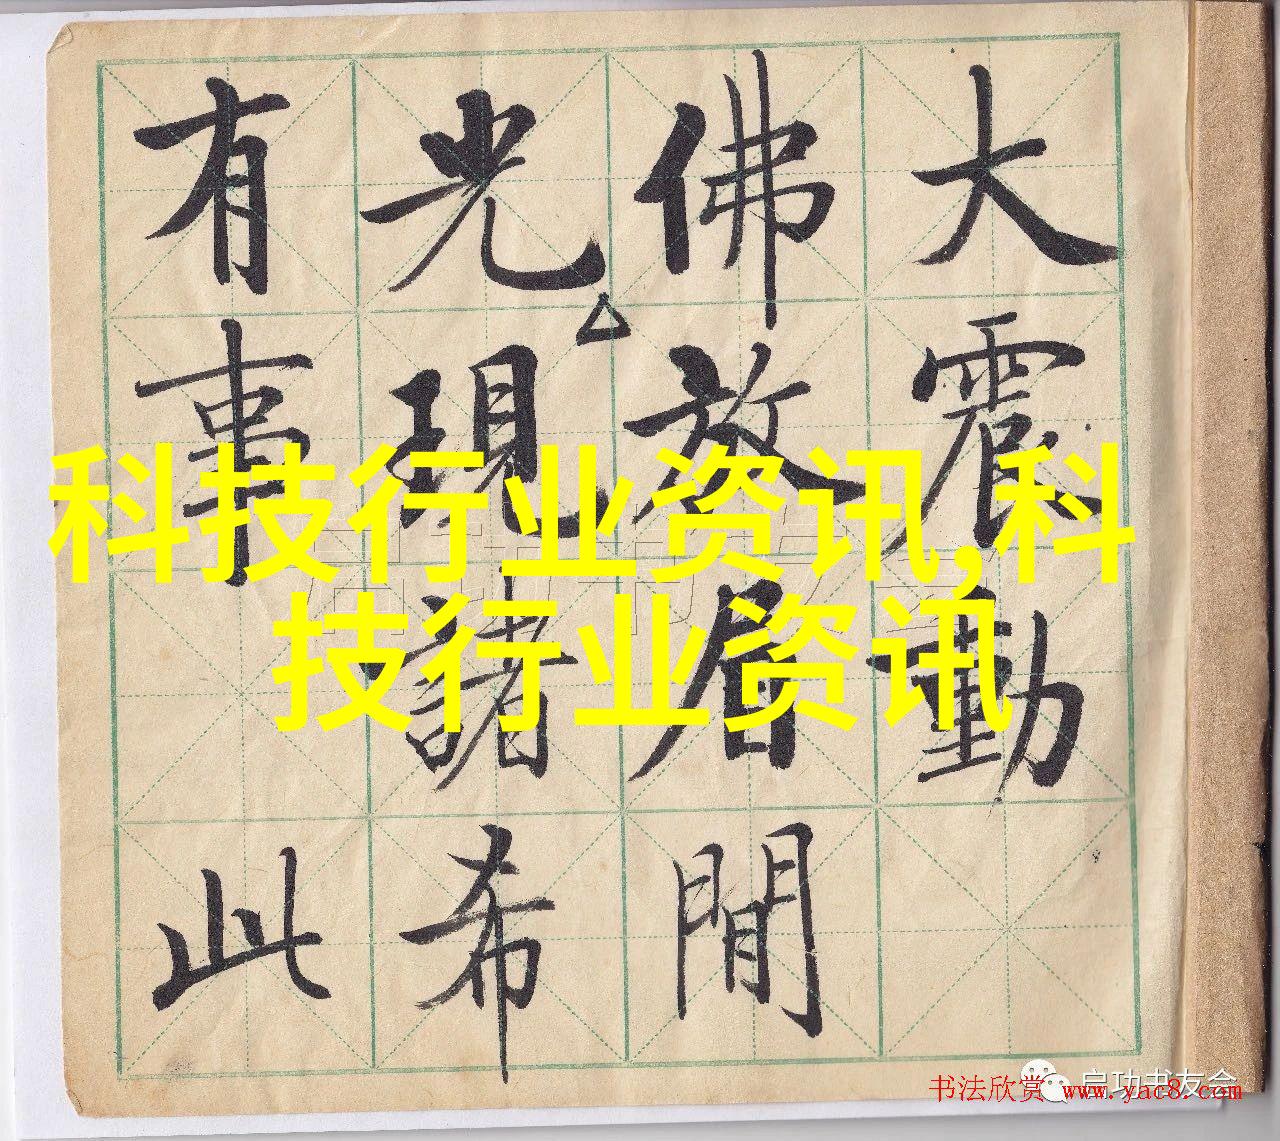 大震動
佛放眉閒
光現諸希
有事此
科技行业资讯,科
技行业资讯
启功书友会
书法欣赏 www.yac8.com